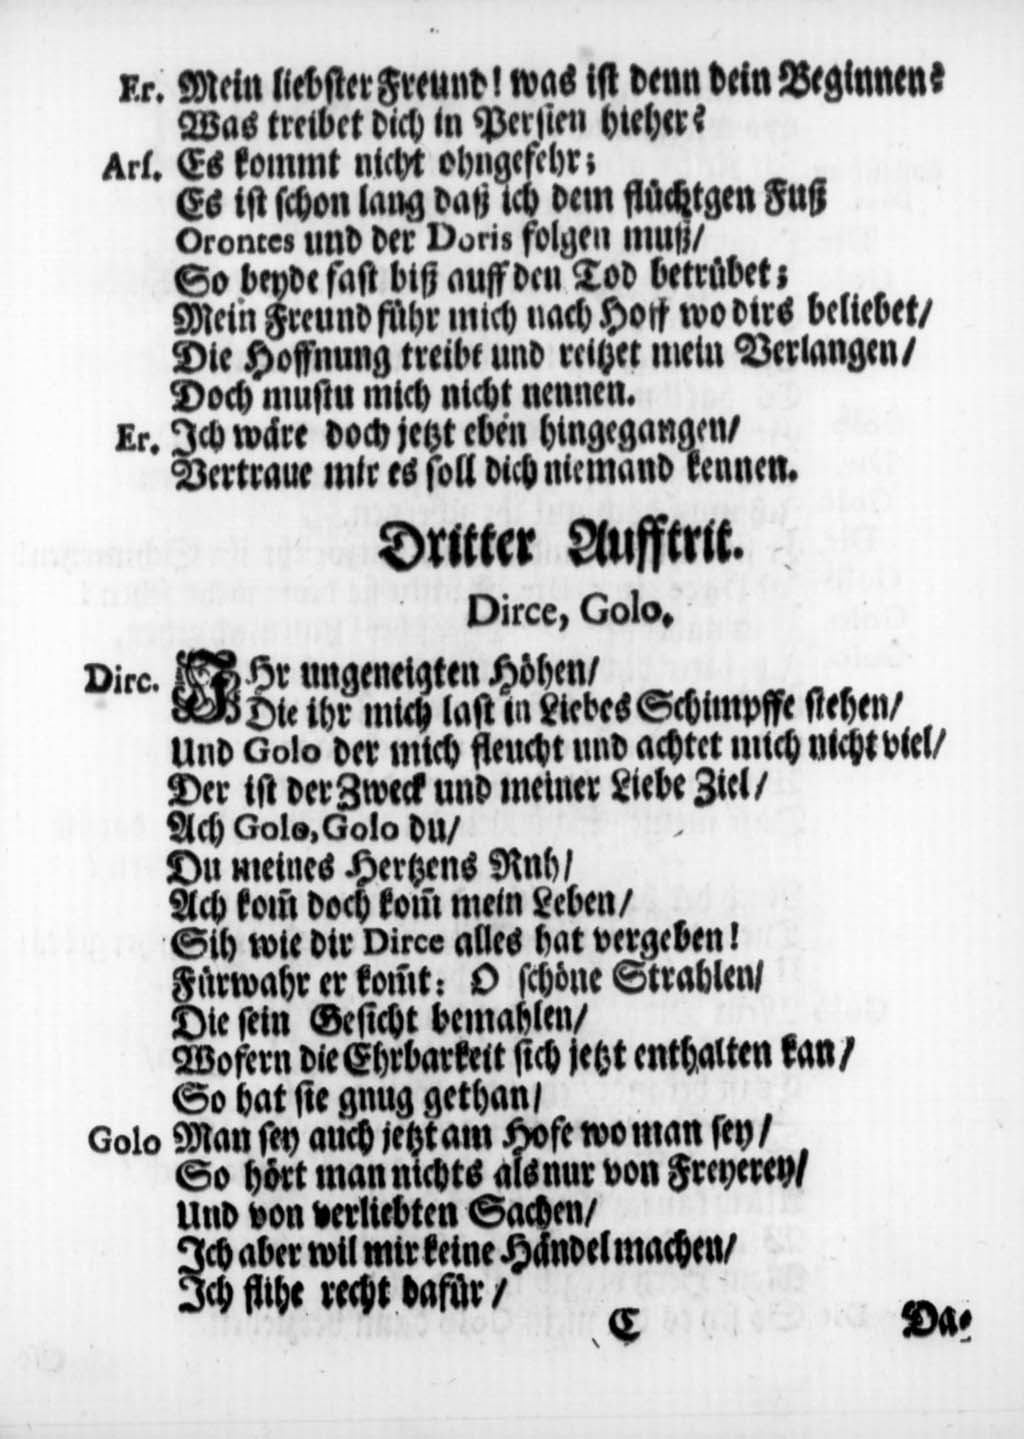 Er. Mein liebster Freund! was ist denn dein Beginnen?
Was treibet dich in Persien hieher?
Arſ. Es kommt nicht ohngefehr;
Es ist schon lang daß ich dem flüchtgen Fuß
Orontes und der Doris folgen muß/
So beyde fast biß auff den Tod betrübet;
Mein Freund führ mich nach Hoff wo dirs beliebet/
Die Hoffnung treibt und reitzet mein Verlangen/
Doch mustu mich nicht nennen.
Er. Ich wäre doch jetzt eben hingegangen/
Vertraue mir es soll dich niemand kennen.
Dritter Aufftrit.
Dirce, Golo.
Dirc. IHr ungeneigten Höhen/
Die ihr mich last in Liebes Schimpffe stehen/
Und Golo der mich fleucht und achtet mich nicht viel/
Der ist der Zweck und meiner Liebe Ziel/
Ach Golo, Golo du/
Du meines Hertzens Ruh/
Ach kom̃ doch kom̃ mein Leben/
Sih wie dir Dirce alles hat vergeben!
Fürwahr er kom̃t: O schöne Strahlen/
Die sein Gesicht bemahlen/
Wofern die Ehrbarkeit sich jetzt enthalten kan/
So hat sie gnug gethan/
Golo Man sey auch jetzt am Hofe wo man sey/
So hört man nichts als nur von Freyerey/
Und von verliebten Sachen/
Ich aber wil mir keine Händel machen/
Ich flihe recht dafür/
C Da-